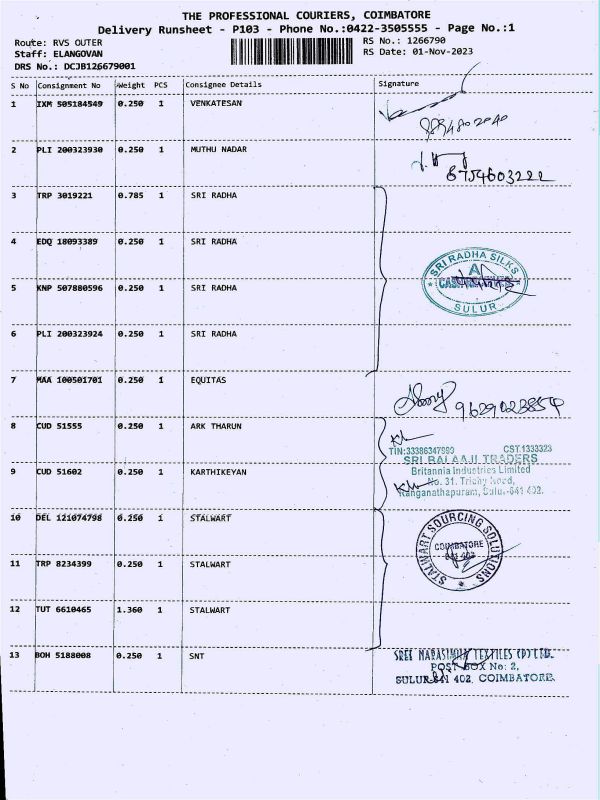 THE PROFESSIONAL COURIERS, COIMBATORE
Delivery Runsheet - P103 - Phone No.:0422-3505555 - Page No.:1
Route: RVS OUTER RS No.: 1266790
Staff: ELANGOVAN RS Date: 01-Nov-2023
DRS No.: DCJB126679001
S No Consignment No Weight PCS Consignee Details Signature
1 IXM 505184549 0.250 1 VENKATESAN
2 PLI 200323930 0.250 1 MUTHU NADAR
8754603222
3 TRP 3019221 0.785 1 SRI RADHA
4 EDQ 18093389 0.250 1 SRI RADHA
SRI RADHA SILKS
A
SULUR
5 KNP 507880596 0.250 1 SRI RADHA
6 PLI 200323924 0.250 1 SRI RADHA
7 MAA 100501701 0.250 1 EQUITAS
8 CUD 51555 0.250 1 ARK THARUN
TIN:33386347989 CST.1333323
SRI BALAAJI TRADERS
9 CUD 51602 0.250 1 KARTHIKEYAN
Britannia Industries Limited
No. 31. Trichy Road,
Ranganathapuram, Sulur-641 402.
10 DEL 121074798 0.250 1 STALWART
STALWART SOURCING SOLUTIONS
COIMBATORE
641 402
11 TRP 8234399 0.250 1 STALWART
12 TUT 6610465 1.360 1 STALWART
13 BOH 5188008 0.250 1 SNT
SREE NARASIMHA TEXTILES (P) LTD.
POST BOX No: 2,
SULUR-641 402, COIMBATORE.